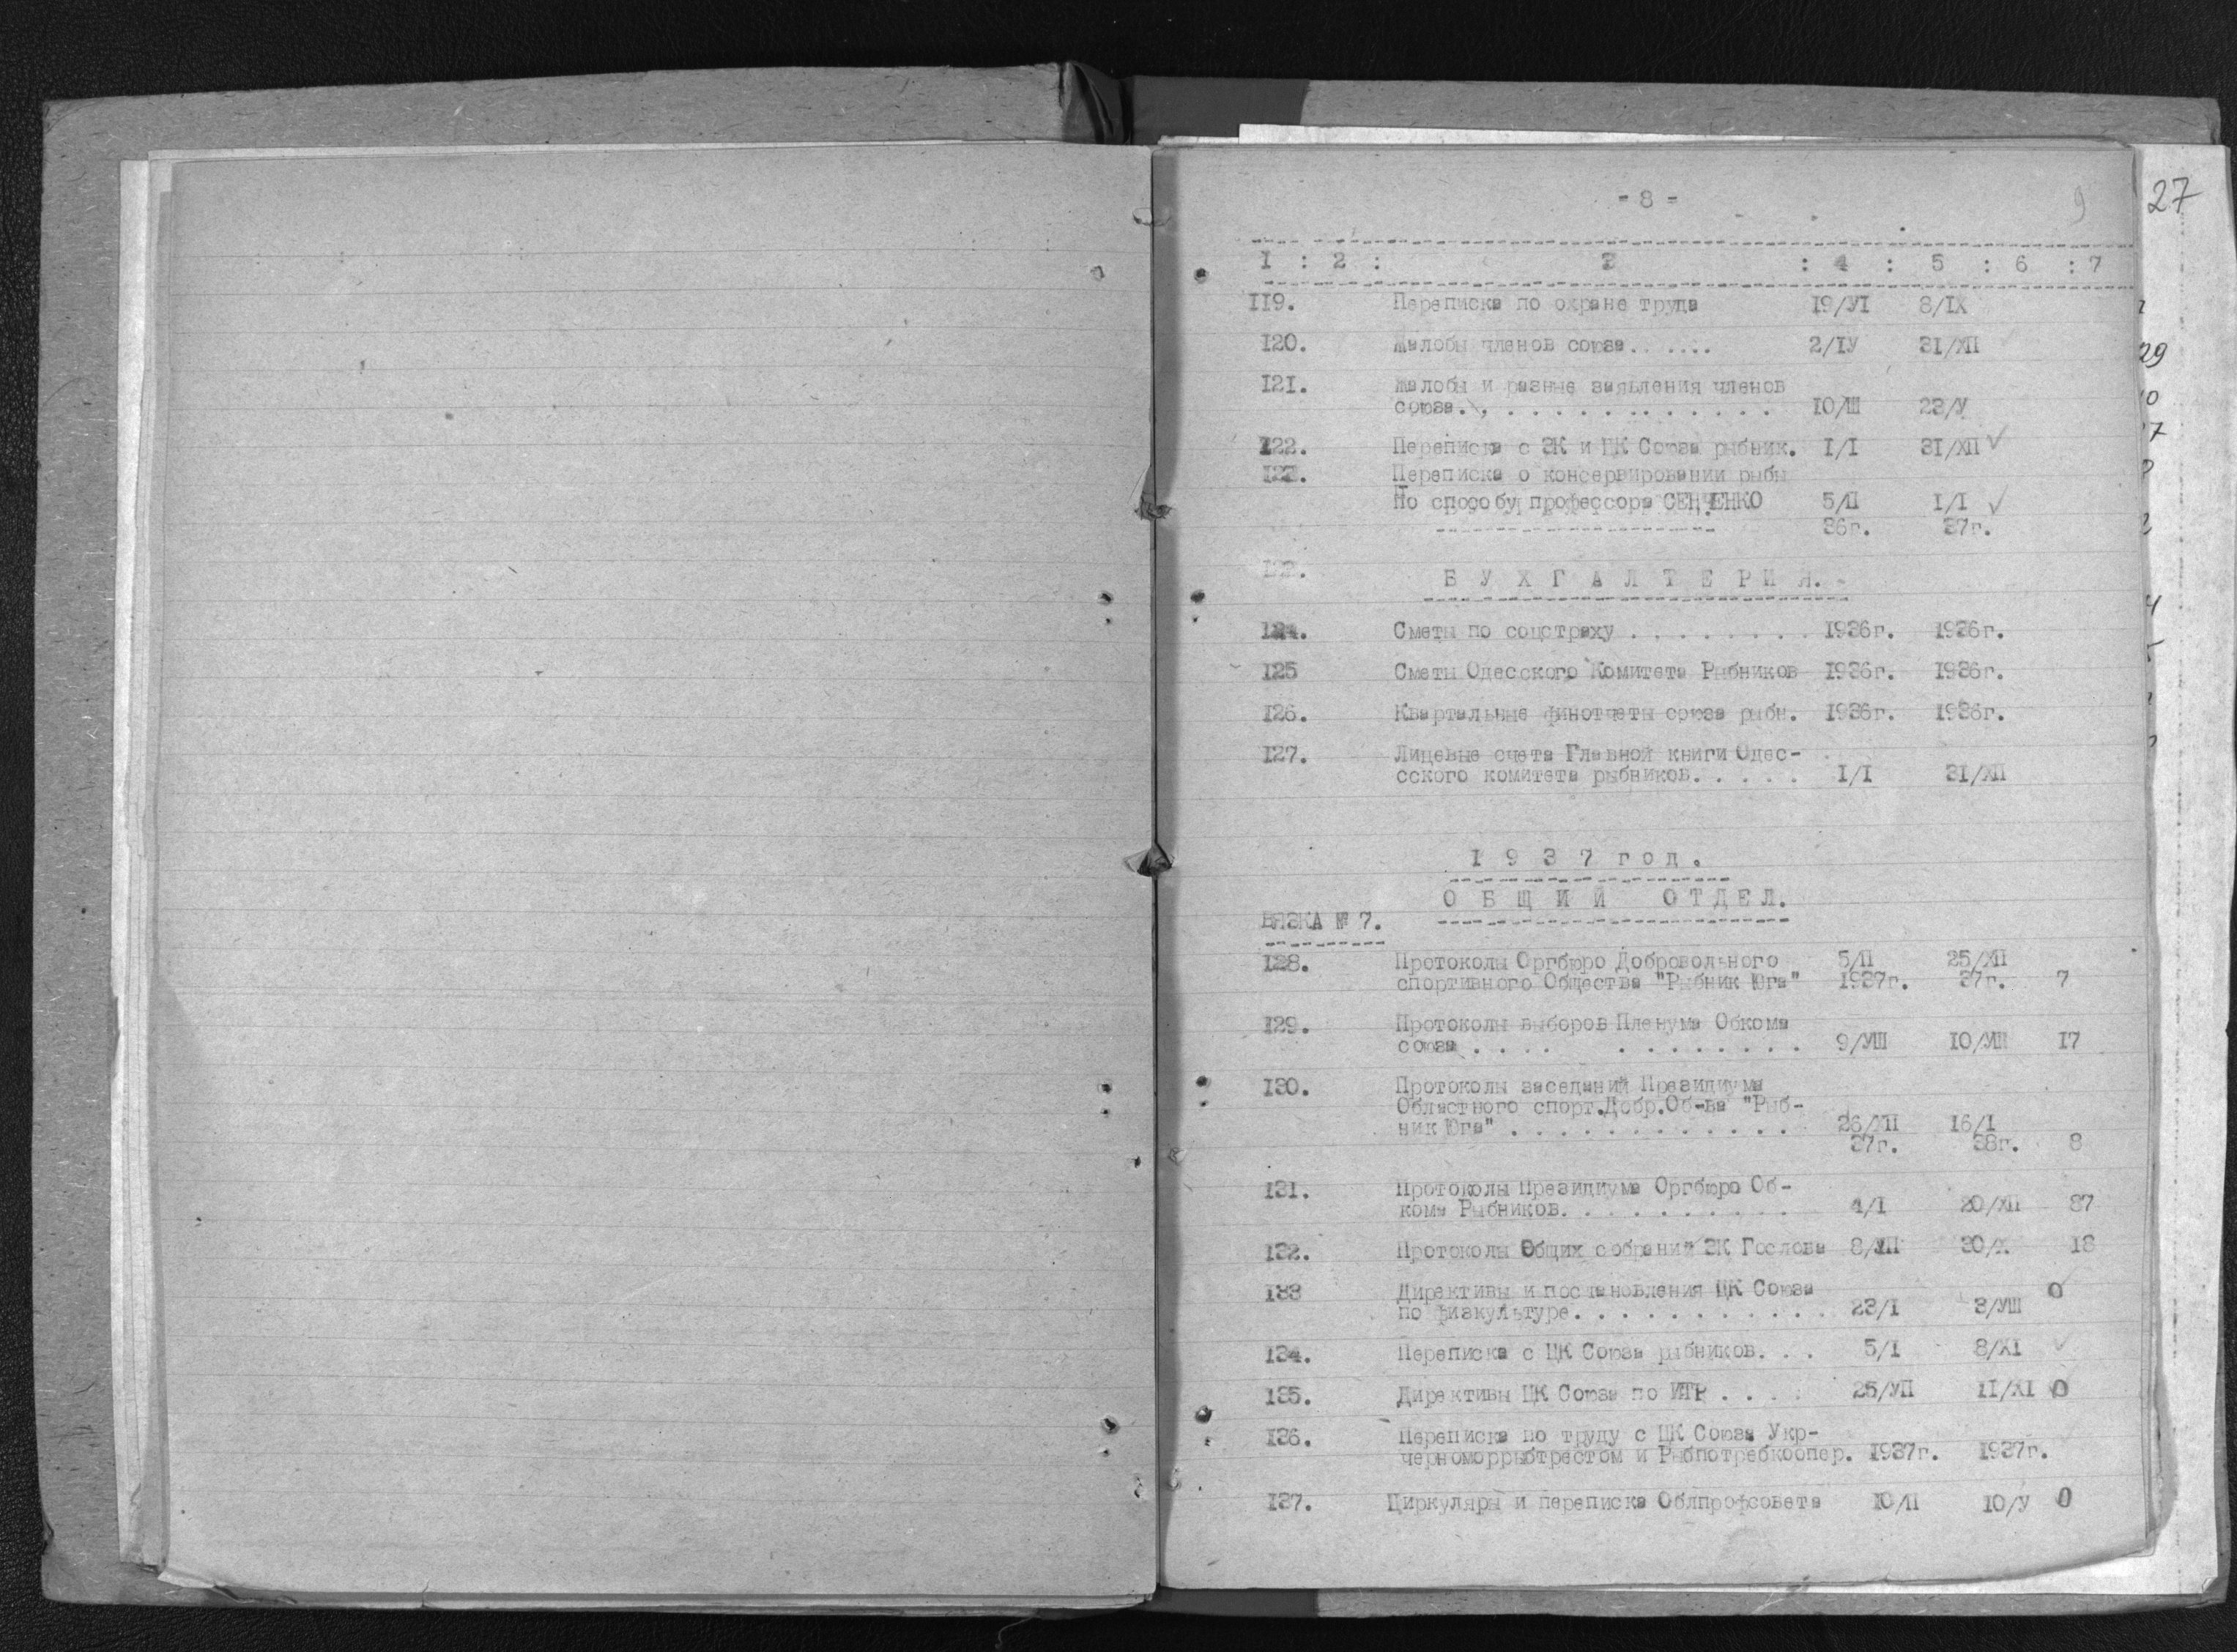 - 8 -
9
27
I : 2 : 3 : 4 : 5 : 6 : 7
II9. Переписка по охране труда 19/УI 8/IX
I20. Жалобы членов союза...... 2/IУ 31/ХП
I21. Жалобы и разные заявления членов
союза.. . . . . . . . . . . . . 10/Ш 23/У
I22. Переписка с ЗК и ЦК Союза рыбник. I/I 31/ХП ✓
Переписка о консервировании рыбы
По способу профессора СЕНЧЕНКО 5/П I/I ✓
36г. 37г.
Б У Х Г А Л Т Е Р И Я.
124. Сметы по соцстраху . . . . . . . . 1936г. 1936г.
125 Сметы Одесского Комитета Рыбников 1936г. 1936г.
I26. Квартальные финотчеты союза рыбн. 1936г. 1936г.
127. Лицевые счета Главной книги Одес-
сского комитета рыбников. . . . . I/I 31/ХП
I 9 3 7 г о д .
О Б Щ И Й О Т Д Е Л.
ВЯЗКА № 7.
128. Протоколы Оргбюро Добровольного 5/П 25/ХП
спортивного Общества "Рыбник Юга" 1937г. 37г. 7
129. Протоколы выборов Пленума Обкома
союза . . . . . . . . . . . . 9/УШ 10/УШ 17
130. Протоколы заседаний Президиума
Областного спорт.Добр.Об-ва "Рыб-
ник Юга" . . . . . . . . . . . . 26/ХП 16/I
37г. 38г. 8
131. Протоколы Президиума Оргбюро Об-
кома Рыбников. . . . . . . . . . 4/I 20/ХП 87
132. Протоколы Общих собраний ЗК Гослова 30/Х 18
133 Директивы и постановления ЦК Союза 0
по физкультуре. . . . . . . . . . . 23/I 3/УШ
134. Переписка с ЦК Союза рыбников. . . 5/I 8/XI ✓
135. Директивы ЦК Союза по ИТР . . . . 25/УП 11/XI 0
136. Переписка по труду с ЦК Союза Укр-
черноморрыбтрестом и Рыбпотребкоопер. 1937г. 1937г.
137. Циркуляры и переписка Облпрофсовета 10/П 10/У 0